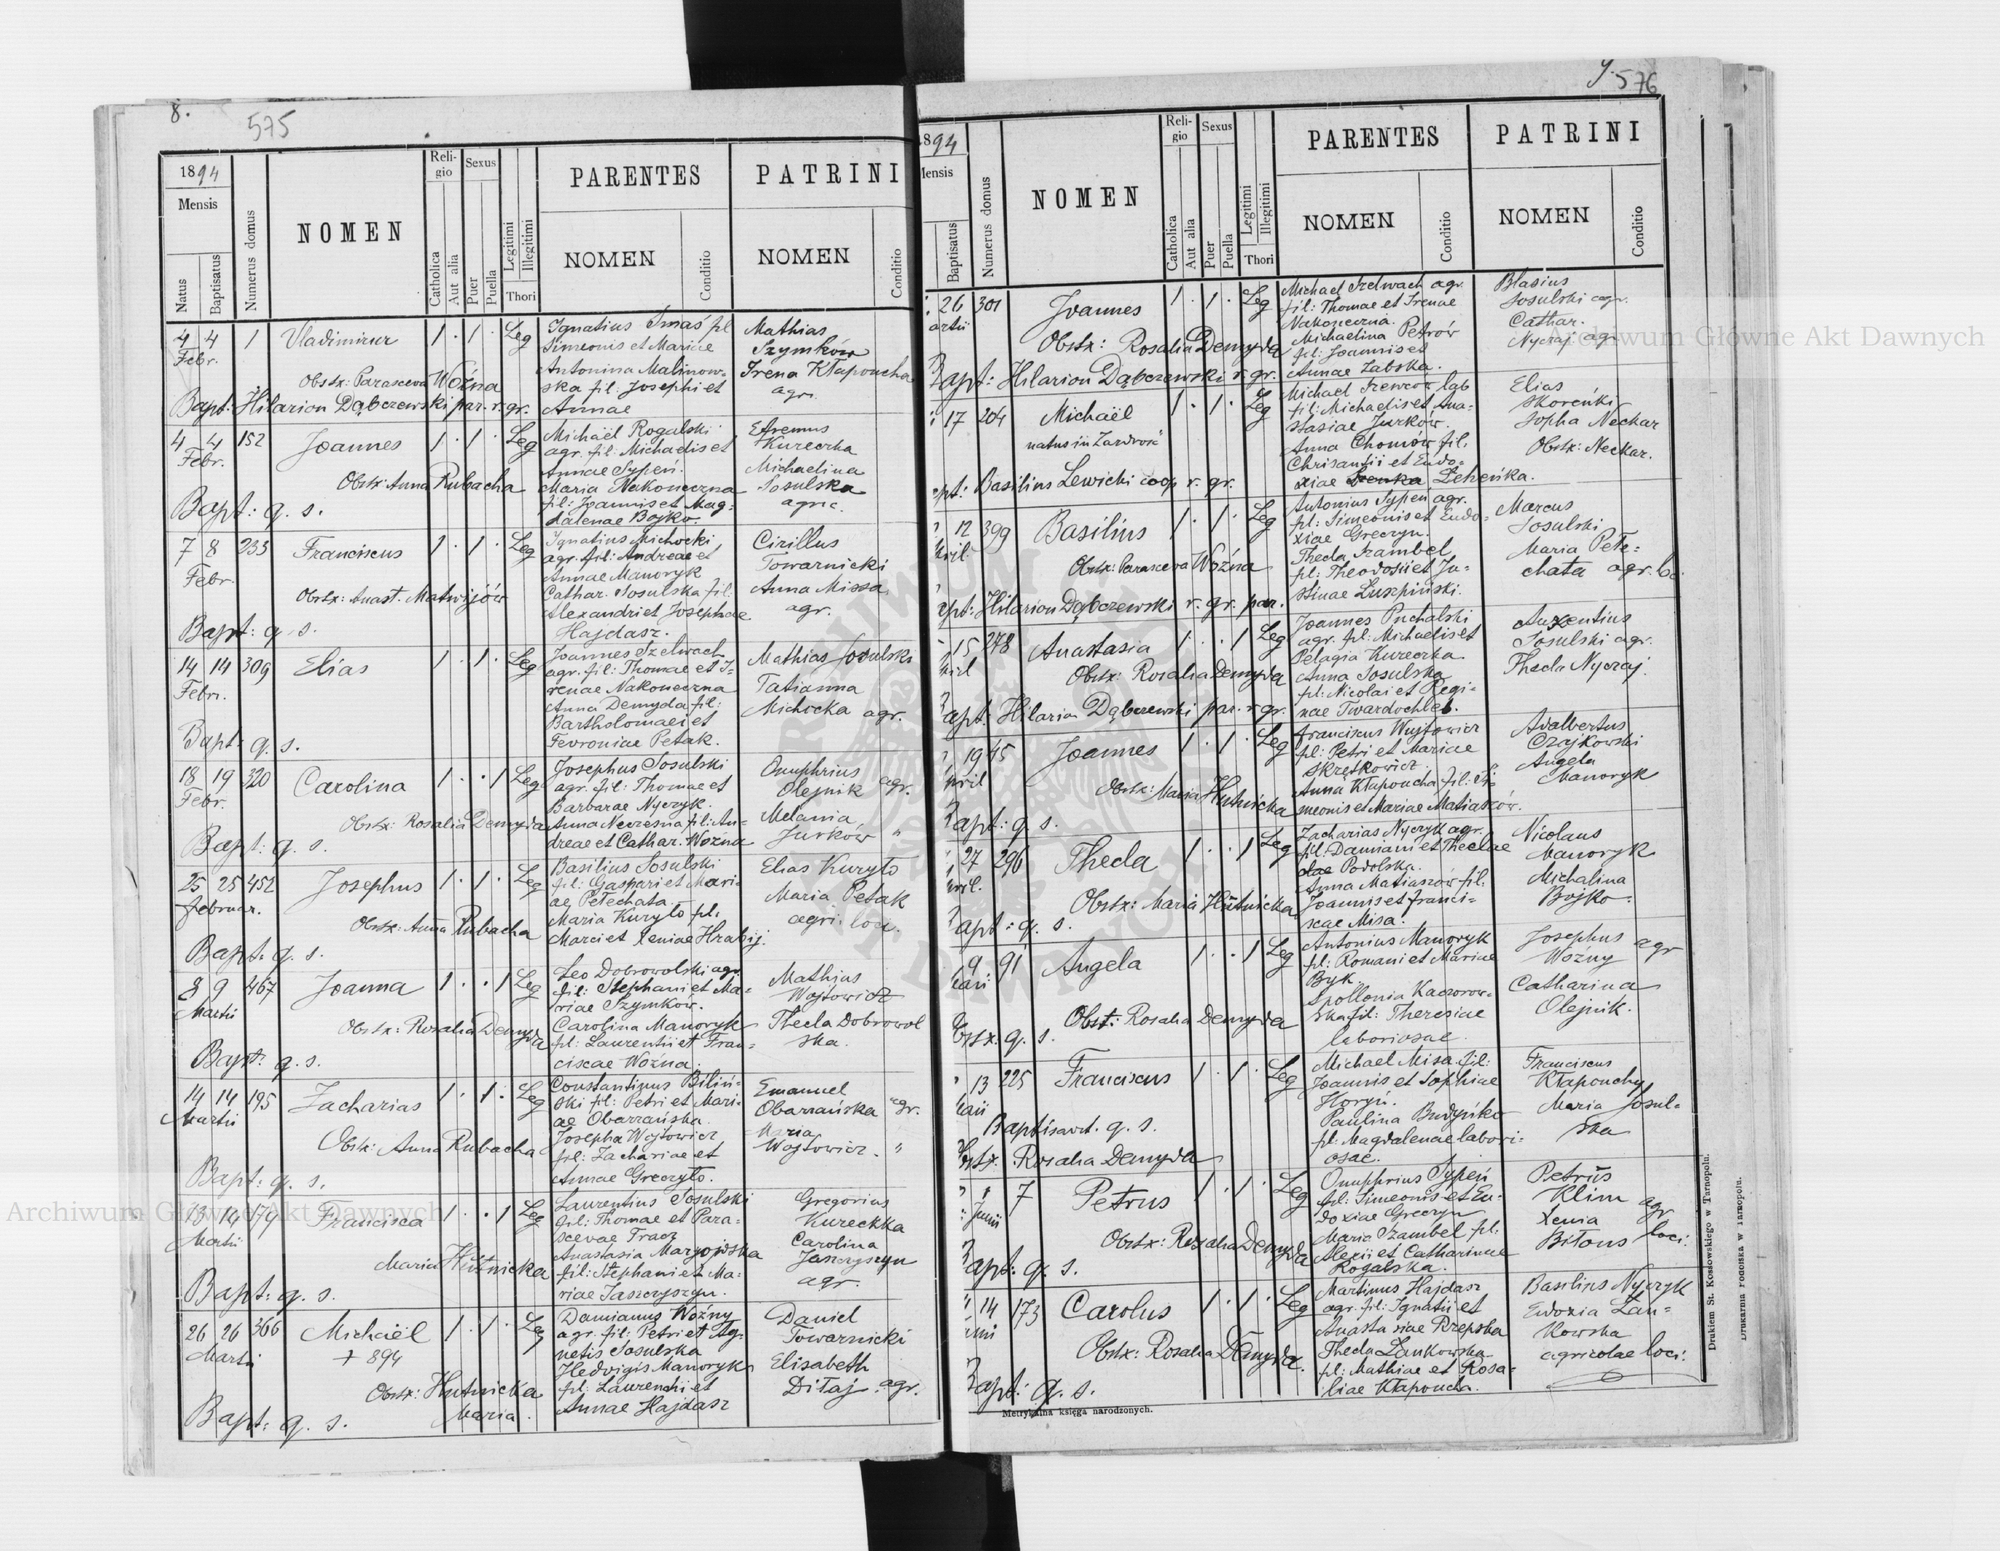 8.
575
1894
Mensis
Natus
Baptisatus
Numerus domus
NOMEN
Religio
Catholica
Aut alia
Sexus
Puer
Puella
Legitimi
Illegitimi
Thori
PARENTES
NOMEN
Conditio
PATRINI
NOMEN
Conditio
4 4 1 Vladimirus 1 . 1 . Leg
Febr.
Obstx: Parasceva Woźna
Bapt: Hilarion Dąbczewski par. r. gr.
Ignatius Smaś fil
Simeonis et Mariae
Antonina Malinow-
ska fil: Josephi et
Annae
Mathias
Szymków
Irena Kłapoucha
agr.
4 4 152 Joannes 1 . 1 . Leg
Febr.
Obstx: Anna Rubacha
Bapt: q. s.
Michaël Rogalski
agr. fil: Michaelis et
Annae Sypeń.
Maria Nakoneczna
fil: Joannis et Mag-
dalenae Bojko.
Efremus
Kureczka
Michaelina
Sosulska
agric.
7 8 233 Franciscus 1 . 1 . Leg
Febr
Obstx: Anast. Matwijów
Bapt: q. s.
Ignatius Michocki
agr. fil: Andreae et
Annae Manoryk
Cathar. Sosulska fil:
Alexandri et Josephae
Hajdasz.
Cirillus
Towarnicki
Anna Missa
agr.
14 14 309 Elias 1 . 1 . Leg
Febr.
Bapt: q. s.
Joannes Szelwach
agr. fil: Thomae et I-
renae Nakoneczna
Anna Demyda fil:
Bartholomaei et
Fevroniae Petak.
Mathias Sosulski
Tatianna
Michocka agr.
18 19 320 Carolina 1 . . 1 Leg
Febr.
Obstx: Rosalia Demyda
Bapt: q. s.
Josephus Sosulski
agr. fil: Thomae et
Barbarae Nyczyk.
Anna Neczesna fil: An-
dreae et Cathar. Woźna
Onuphrius
Olejnik agr.
Melania
Jurków "
25 25 452 Josephus 1 . 1 . Leg
Februar.
Obstx: Anna Rubacha
Bapt: q. s.
Basilius Sosulski
fil: Gaspari et Mari-
ae Petechata.
Maria Kuryło fil:
Marci et Xeniae Hrabij.
Elias Kuryło
Maria Petak
agri. loci.
8 9 467 Joanna 1 . . 1 Leg
Martii
Obstx: Rosalia Demyda
Bapt: q. s.
Leo Dobrowolski agr.
fil: Stephani et Ma-
riae Szymków.
Carolina Manoryk
fil: Laurentii et Fran-
ciscae Woźna.
Mathias
Wojtowicz
Thecla Dobrowol
ska.
14 14 195 Zacharias 1 . 1 . Leg
Martii
Obstx: Anna Rubacha
Bapt: q. s.
Constantinus Biliń-
ski fil: Petri et Mari-
ae Obarzańska.
Josepha Wojtowicz
fil: Zachariae et
Annae Greczyło.
Emanuel
Obarzańska agr.
Maria
Wojtowicz. "
13 14 179 Francisca 1 . . 1 Leg
Martii
Maria Hutnicka
Bapt: q. s.
Laurentius Sosulski
fil: Thomae et Para-
scevae Tracz
Anastasia Margojoska
fil: Stephani et Ma-
riae Jaszczyszyn.
Gregorius
Kureckka
Carolina
Jaszczyszyn
agr.
26 26 366 Michaël 1 . 1 . Leg
Martii + 894
Obstx: Hutnicka
Maria.
Bapt: q. s.
Damianus Woźny
agr. fil: Petri et Ag-
netis Sosulska
Hedvigis Manoryk
fil: Laurentii et
Annae Hajdasz
Daniel
Towarnicki
Elisabeth
Diłaj. agr.
9. 576
1894
Mensis
Baptisatus
Numerus domus
NOMEN
Religio
Catholica
Aut alia
Sexus
Puer
Puella
Legitimi
Illegitimi
Thori
PARENTES
NOMEN
Conditio
PATRINI
NOMEN
Conditio
26 301 Joannes 1 . 1 . Leg
artii
Obstx: Rosalia Demyda
Bapt: Hilarion Dąbczewski r. gr.
Michael Szelwach agr.
fil: Thomae et Irenae
Nakoneczna.
Michaelina Petrów
fil: Joannis et
Annae Zabska.
Blasius
Sosulski agr.
Cathar.
Nyczaj agr.
17 204 Michaël 1 . 1 . Leg
natus in Zazdrość
ept: Basilius Lewicki coop r. gr.
Michael Szewców lab
fil: Michaelis et Ana-
stasiae Jurków.
Anna Chomów fil.
Chrisantii et Eudo-
xiae Leheńka.
Elias
Skoreńki
Sopha Neckar
Obstx: Neckar.
12 399 Basilius 1 . 1 . Leg
pril
Obstx: Parasceva Woźna
apt: Hilarion Dąbczewski r. gr. par.
Antonius Sypeń agr.
fil: Simeonis et Eudo-
xiae Greczyn.
Thecla Szambel
fil: Theodosii et Ju-
stinae Luszpiński.
Marcus
Sosulski
Maria Pete-
chata agr. loc.
15 248 Anastasia 1 . . 1 Leg
pril
Obstx: Rosalia Demyda
Bapt: Hilarion Dąbczewski par. r. gr.
Joannes Puchalski
agr. fil: Michaelis et
Pelagia Kureczka
Anna Sosulska
fil: Nicolai et Regi-
nae Twardochleb.
Auxentius
Sosulski agr.
Thecla Nyczaj
19 45 Joannes 1 . 1 . Leg
pril
Obstx: Maria Hutnicka
Bapt: q. s.
Franciscus Wujtowicz
fil: Petri et Mariae
Skrętkowicz.
Anna Kłapoucha fil: Si-
meonis et Mariae Matiaszów.
Adalbertus
Czajkowski
Angela
Manoryk
27 296 Thecla 1 . . 1 Leg
pril.
Obstx: Maria Hutnicka
Bapt: q. s.
Zacharias Nyczyk agr.
fil: Damiani et Theclae
dae Podolska.
Anna Matiaszów fil:
Joannis et Franci-
scae Misa.
Nicolaus
Manoryk
Michalina
Bojko.
9 91 Angela 1 . . 1 Leg
Maii
Obst: Rosalia Demyda
Obstx: q. s.
Antonius Manoryk
fil: Romani et Mariae
Byk.
Apollonia Kaczorow-
ska fil: Theresiae
laboriosae.
Josephus agr
Woźny
Catharina
Olejnik.
13 225 Franciscus 1 . 1 . Leg
Maii
Baptisavit. q. s.
Obstx. Rosalia Demyda
Michael Misa fil:
Joannis et Sophiae
Horyń.
Paulina Budyńko
fil: Magdalenae labori-
osae.
Franciscus
Kłapouchy
Maria Sosul-
ska
7 Petrus 1 . 1 . Leg
Junii
Obstx: Rosalia Demyda
Bapt: q. s.
Onuphrius Sypeń
fil: Simeonis et Eu-
doxiae Greczyn
Maria Szambel fil.
Alexii et Catharinae
Rogalska.
Petrus
Klim agr
Xenia
Biłous loci.
14 173 Carolus 1 . 1 . Leg
unii
Obstx: Rosalia Demyda.
Bapt: q. s.
Martinus Hajdasz
agr. fil: Ignatii et
Anastasiae Rzepska
Thecla Zankowska
fil: Mathiae et Rosa-
liae Kłapoucha.
Basilius Nyczyk
Eudoxia Zan-
kowska
agricolae loci.
Metrykalna księga narodzonych.
Drukiem St. Kossowskiego w Tarnopolu.
Drukarnia Podolska w Tarnopolu.
Archiwum Główne Akt Dawnych
Archiwum Główne Akt Dawnych